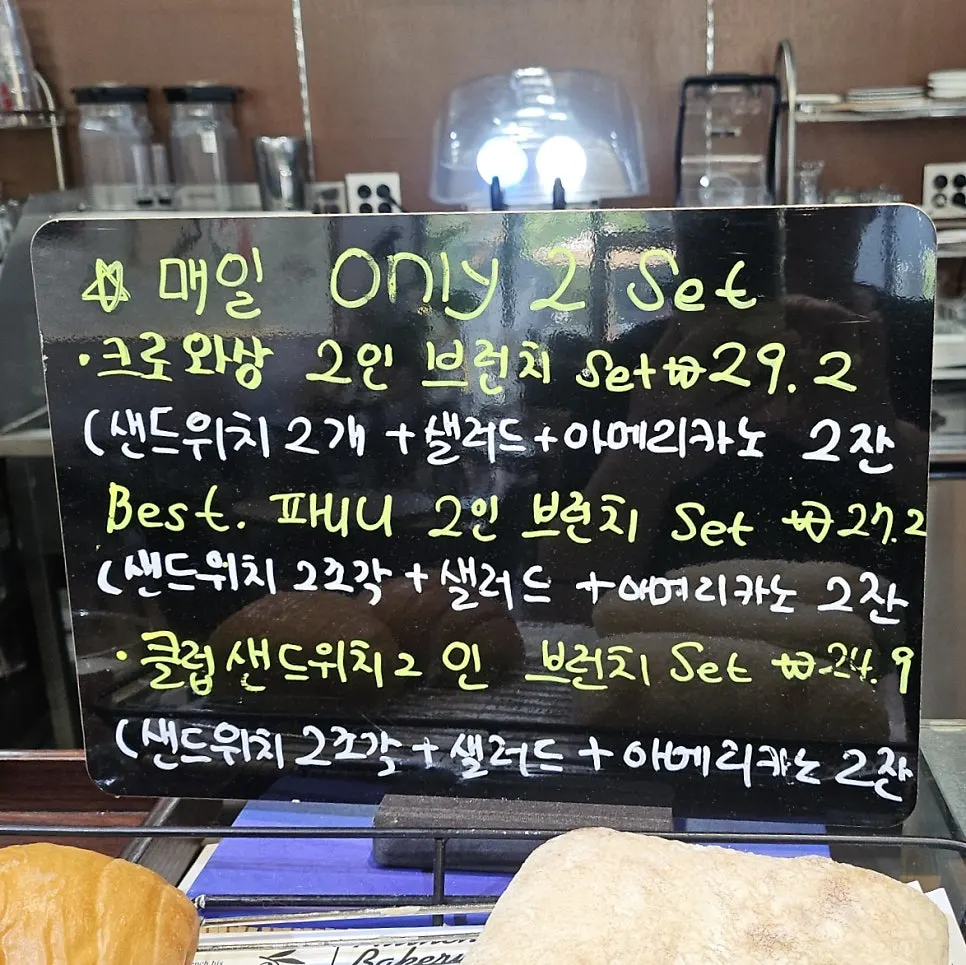 ☆ 매일 Only 2 Set
· 크로와상 2인 브런치 Set ₩29.2
(샌드위치 2개 + 샐러드 + 아메리카노 2잔
Best. 파니니 2인 브런치 Set ₩27.2
(샌드위치 2조각 + 샐러드 + 아메리카노 2잔
· 클럽샌드위치 2인 브런치 Set ₩24.9
(샌드위치 2조각 + 샐러드 + 아메리카노 2잔
Bakery